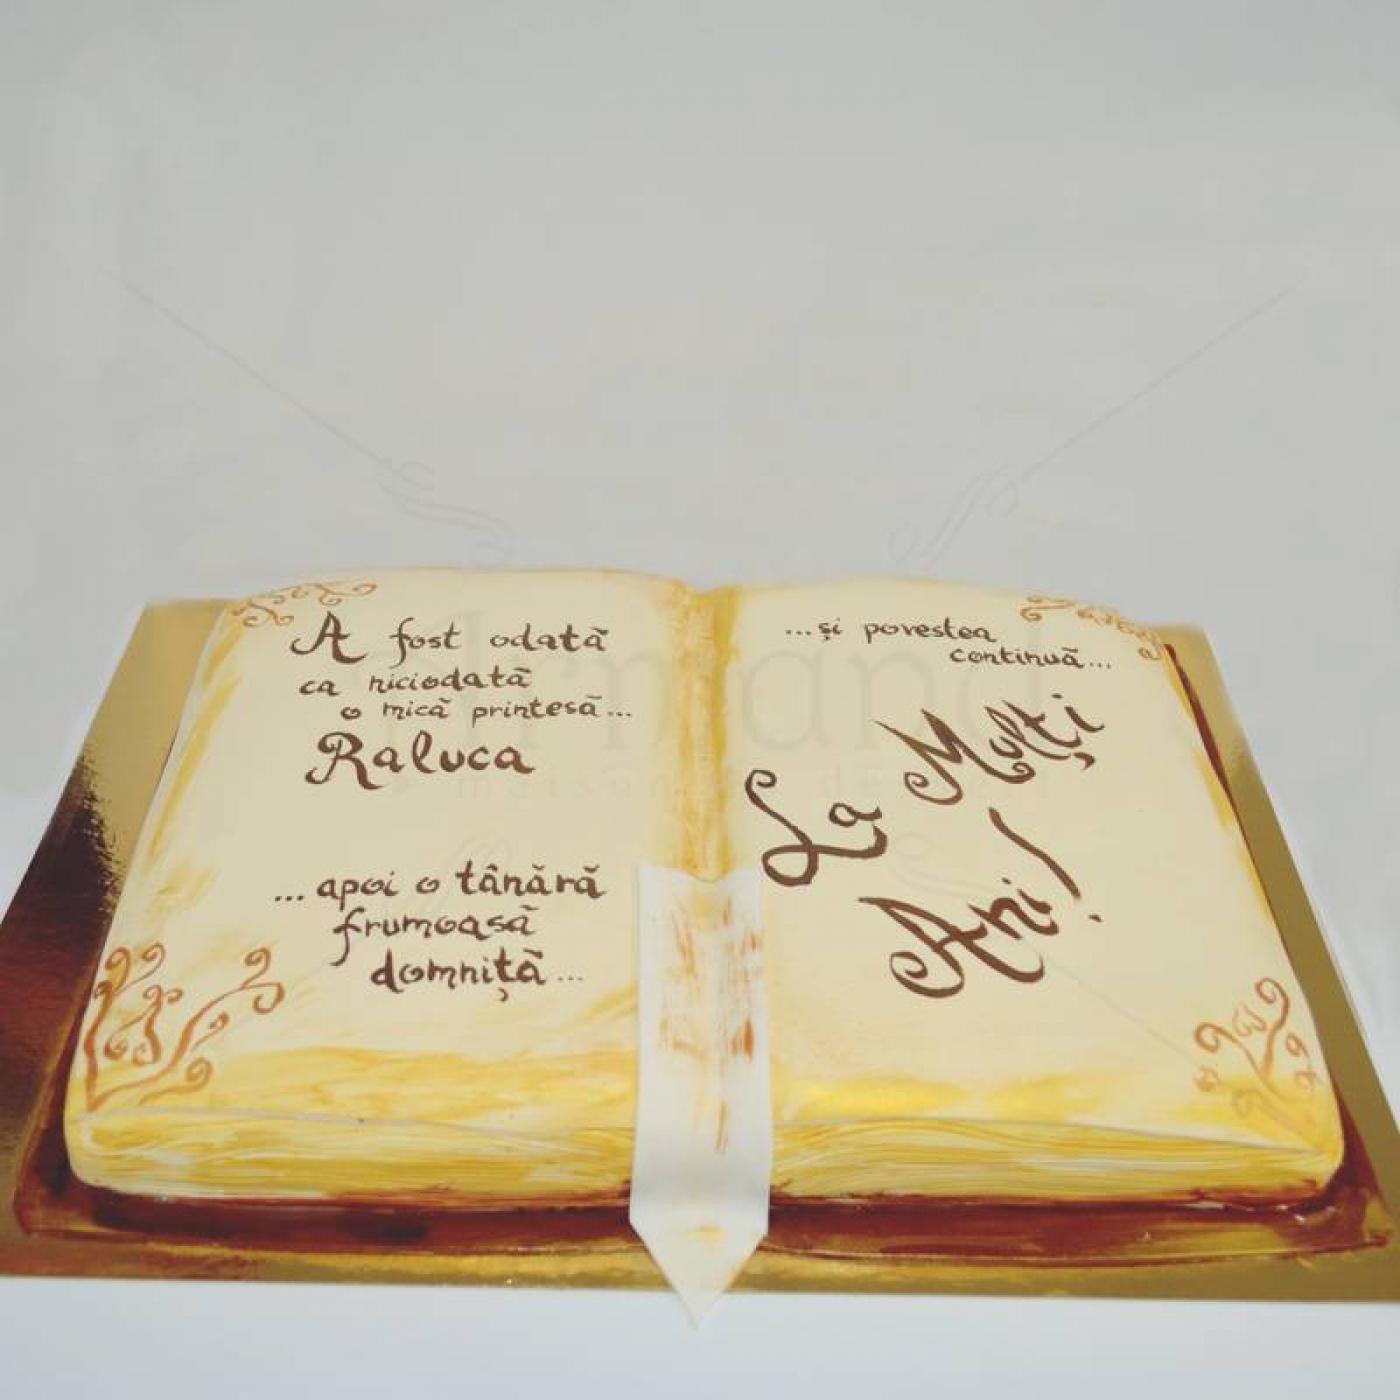 A fost odată
ca niciodată
o mică printesă...
Raluca
...apoi o tânără
frumoasă
domniță...
...și povestea
continuă...
La Mulți
Ani!
Armand